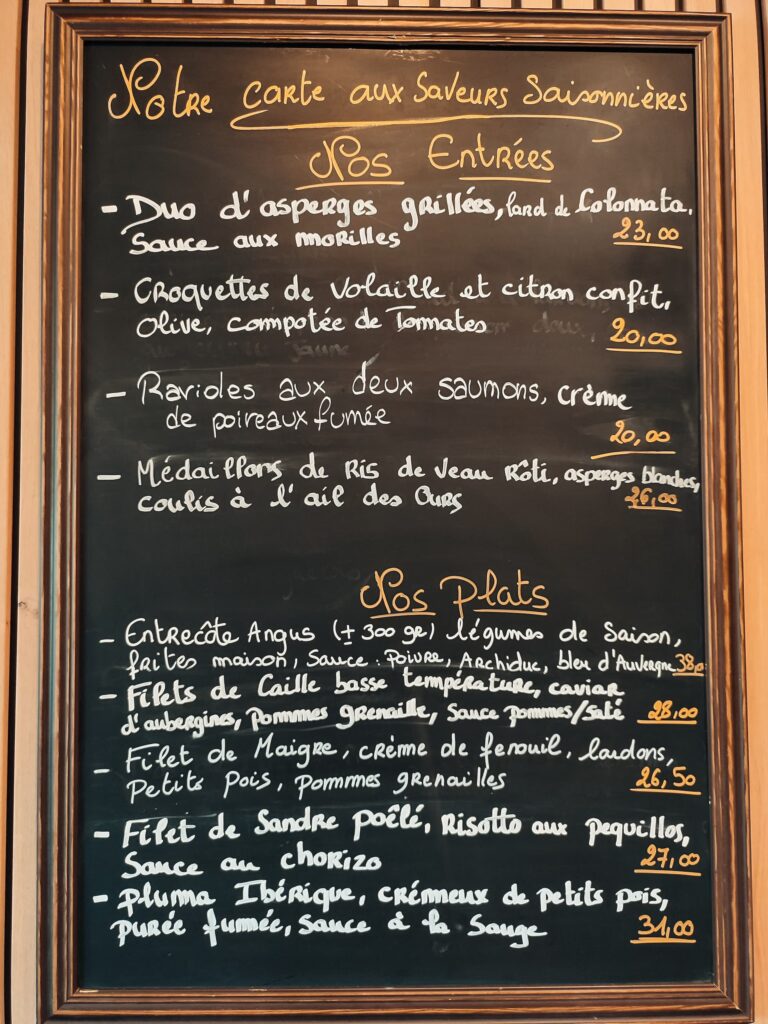 Notre carte aux Saveurs Saisonnières
Nos Entrées
- Duo d'asperges grillées, lard de Colonnata,
Sauce aux morilles 23,00
- Croquettes de Volaille et citron confit,
Olive, compotée de Tomates 20,00
- Ravioles aux deux saumons, crème
de poireaux fumée
20,00
- Médaillons de Ris de Veau Rôti, asperges blanches,
coulis à l'ail des Ours 26,00
Nos plats
- Entrecôte Angus (± 300 gr) légumes de Saison,
frites maison, Sauce : Poivre, Archiduc, bleu d'Auvergne
- Filets de Caille basse température, caviar
d'aubergines, pommes grenaille, Sauce pommes/saté 28,00
- Filet de Maigre, crème de fenouil, lardons,
Petits Pois, pommes grenailles 26,50
- Filet de Sandre poêlé, Risotto aux pequillos,
Sauce au chorizo 27,00
- Pluma Ibérique, crémeux de petits pois,
purée fumée, Sauce à la Sauge 31,00